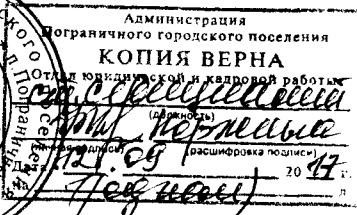 Администрация
Пограничного городского поселения
КОПИЯ ВЕРНА
Отдел юридической и кадровой работы
ст. специалист
(должность)
(личная подпись) (расшифровка подписи)
Дата 12.09 2017 г.
На 1 (один) л